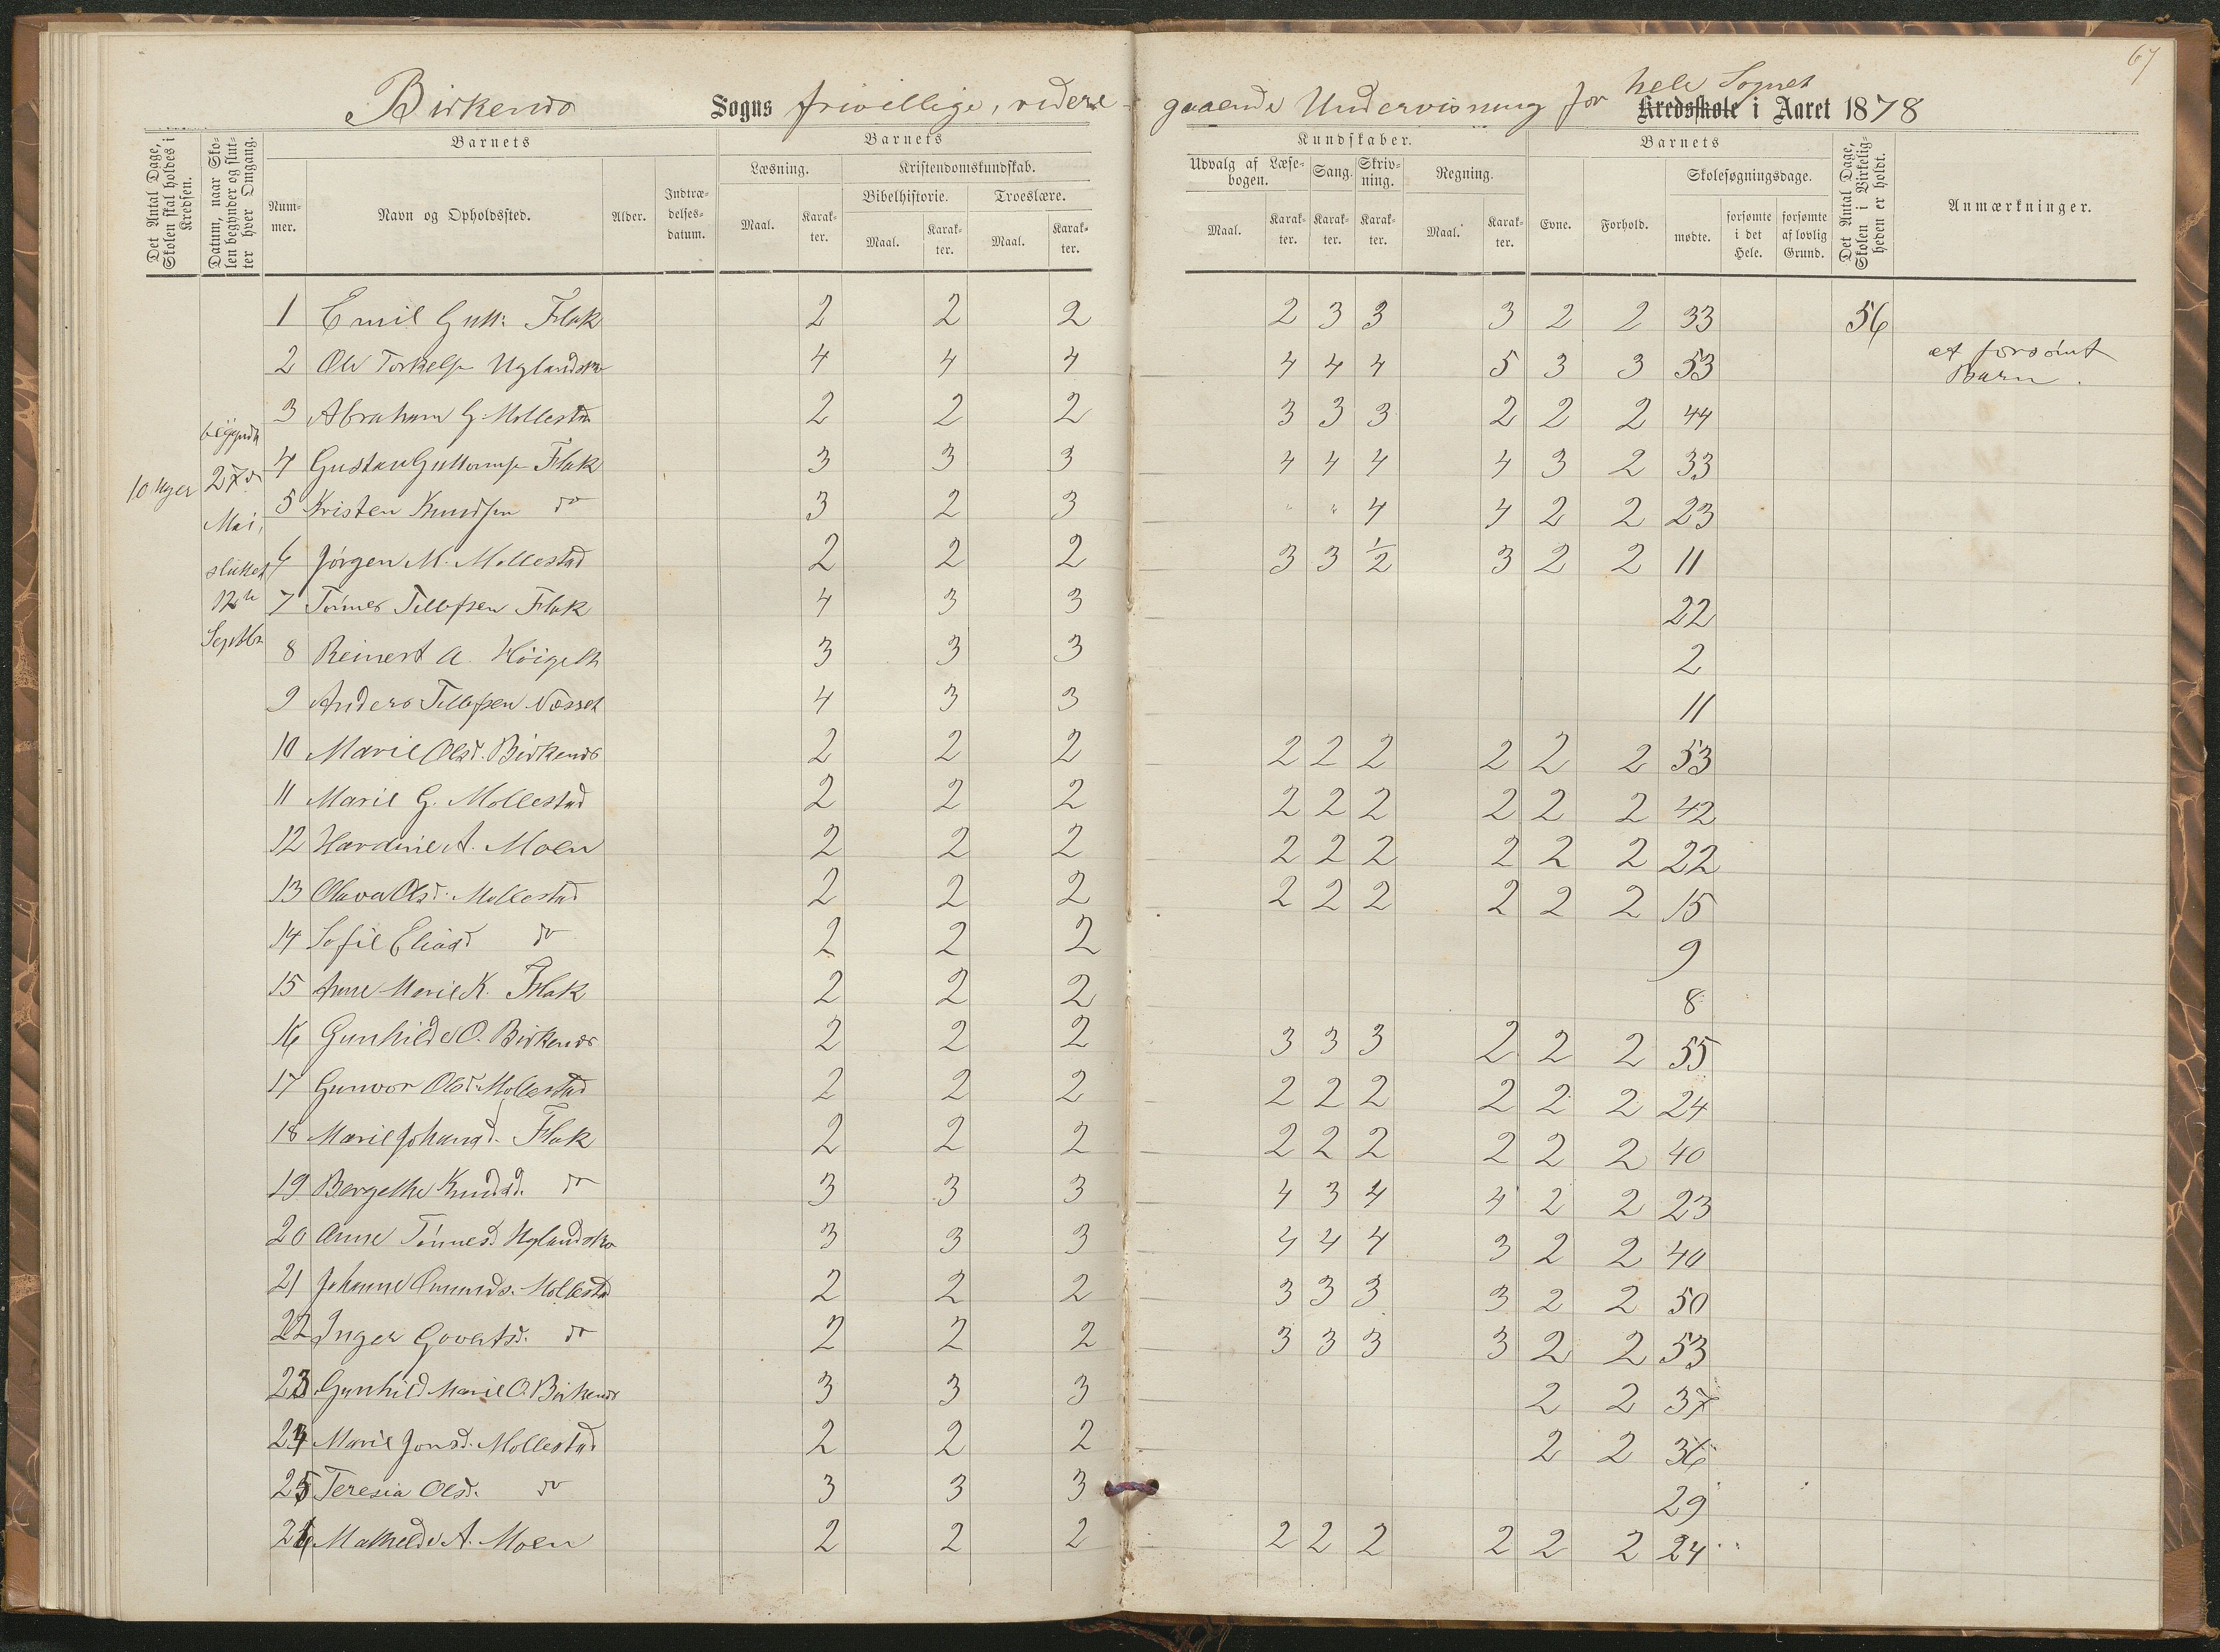 67
Birkenes Sogns frivillige, videre- gaaende Undervisning for hele Sognet Kredsskole i Aaret 1878
Det Antal Dage, Skolen skal holdes i Kredsen.
Datum, naar Skolen begynder og slutter hver Omgang.
Barnets
Nummer.
Navn og Opholdssted.
Alder.
Indtrædelsesdatum.
Barnets
Læsning.
Maal.
Karakter.
Kristendomskundskab.
Bibelhistorie.
Maal.
Karakter.
Troeslære.
Maal.
Karakter.
Kundskaber.
Udvalg af Læsebogen.
Maal.
Karakter.
Sang.
Karakter.
Skrivning.
Karakter.
Regning.
Maal.
Karakter.
Barnets
Evne.
Forhold.
Skolesøgningsdage.
mødte.
forsømte i det Hele.
forsømte af lovlig Grund.
Det Antal Dage, Skolen i Virkeligheden er holdt.
Anmærkninger.
10 Uger
begyndt
27de
Mai,
sluttet
12te
Septbr
1 Emil Gutt: Flak 2 2 2 2 3 3 3 2 2 33 56
2 Ole Torkelsen Uglandskr 4 4 4 4 4 4 5 3 3 53 et forsömt Barn.
3 Abraham G. Mollestad 2 2 2 3 3 3 2 2 2 44
4 Gustav Guttormsen Flak 3 3 3 4 4 4 4 3 2 33
5 Kristen Knudsen do 3 2 3 " " 4 4 2 2 23
6 Jörgen M. Mollestad 2 2 2 3 3 1/2 3 2 2 11
7 Tönnes Tellefsen Flak 4 3 3 22
8 Reinert A. 3 3 3 2
9 Anders Tellefsen Næsset 4 3 3 11
10 Marie Olsd. Birkenes 2 2 2 2 2 2 2 2 2 53
11 Marie G. Mollestad 2 2 2 2 2 2 2 2 2 42
12 Hardine A. Moen 2 2 2 2 2 2 2 2 2 22
13 Olava Olsd. Mollestad 2 2 2 2 2 2 2 2 2 15
14 Sofie Eliasd do 2 2 2 9
15 Anne Marie K. Flak 2 2 2 8
16 Gunhilde O. Birkenes 2 2 2 3 3 3 2 2 2 55
17 Gunvor Olsd. Mollestad 2 2 2 2 2 2 2 2 2 24
18 Marie Johansd. Flak 2 2 2 2 2 2 2 2 2 40
19 Bergethe Knudsd. do 3 3 3 4 3 4 4 2 2 23
20 Anne Tönnesd. Uglandskr 3 3 3 4 4 4 3 2 2 40
21 Johanne Omunds. Mollestad 2 2 2 3 3 3 3 2 2 50
22 Inger Govertsd. do 2 2 2 3 3 3 3 2 2 53
23 Gunhild Marie O. Birkenes 3 3 3 2 2 37
24 Marie Jonsd. Mollestad 2 2 2 2 2 36
25 Teresia Olsd. do 3 3 3 29
26 Mathilde A. Moen 2 2 2 2 2 2 2 2 2 24